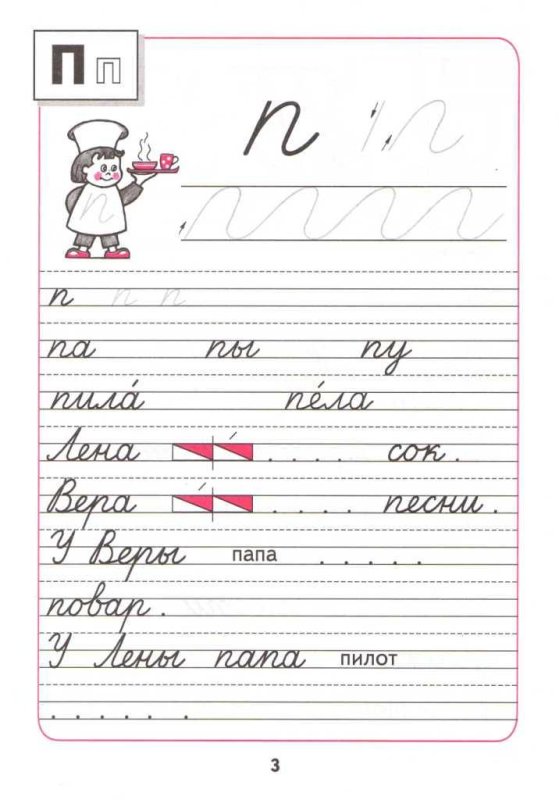 П п
п
п
п п п
па пы пу
пила́ пе́ла
Лена . . . . сок .
Вера . . . . песни .
У Веры папа . . . . .
повар .
У Лены папа пилот
. . . . . .
3